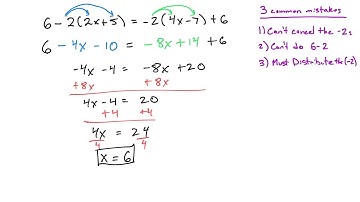 6-2(2x+5) = -2(4x-7)+6
6 -4x -10 = -8x+14 +6
-4x -4 = -8x +20
+8x +8x
4x-4 = 20
+4 +4
4x = 24
4 4
x = 6
3 common mistakes
1) Can't cancel the -2s
2) Can't do 6-2
3) Must Distribute the (-2)